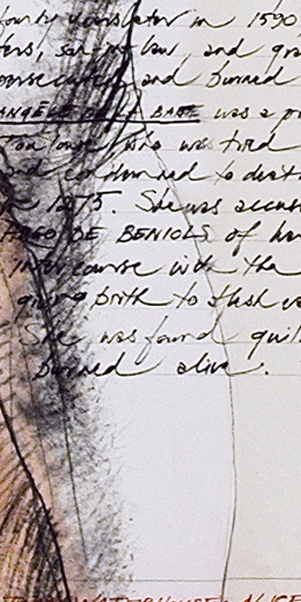 years later in 1590
ters, son-in-law, and gra
persecuted and burned
ANGELE DE LA BARTHE was a
Toulouse who was tried
and condemned to death
1275. She was accuse
HUGO DE BENIOLS of ha
intercourse with the
giving birth to flesh
She was found guil
burned alive.
WATERHOUSE ALICE